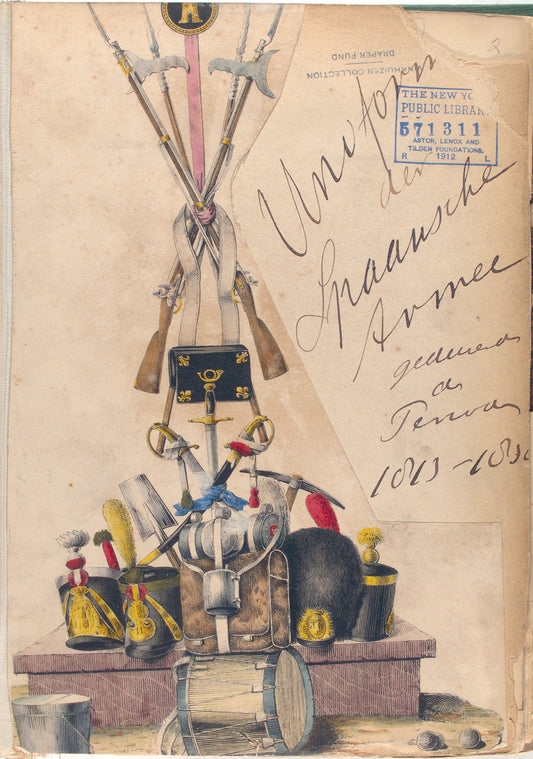 DRAPER FUND
NKHUIZEN COLLECTION
THE NEW YO
PUBLIC LIBRAR
571311
ASTOR, LENOX AND
TILDEN FOUNDATIONS.
R 1912 L
Uniform
der
Spaansche
Armee
gedurende
de
1813-183